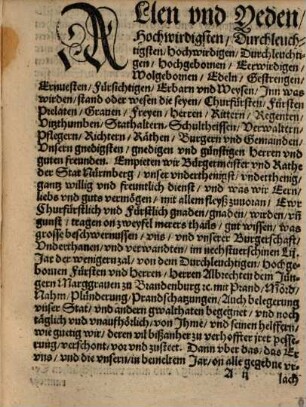 Allen vnd Yeden
Hochwirdigsten / Durchleuch-
tigsten / Hochwirdigen / Durchleuchti-
gen / Hochgebornen / Eerwirdigen /
Wolgebornen / Edeln / Gestrengen /
Ernuesten / Fürsichtigen / Erbarn vnd Weysen / Inn was
wirden / stand oder wesen die seyen / Churfürsten / Fürsten
Prelaten / Grauen / Freyen / Herren / Rittern / Regenten /
Vitzthumben / Stathaltern / Schultheissen / Verwaltern /
Pflegern / Richtern / Räthen / Burgern vnd Gemainden /
Vnsern gnedigsten / gnedigen vnd günstigen Herren vnd
guten freunden. Empieten wir Bürgermeister vnd Rathe
der Stat Nürmberg / vnser vnderthenigst / vnderthenig-
gang willig vnd freuntlich dienst / vnd was wir Eern /
liebs vnd guts vermögen / mit allem fleyß zuuoran / Ewr
Churfürstlich vnd Fürstlich gnaden / gnaden / wirden / vñ
gunst / tragen on zweyfel merers thails / gut wissen / was
grosse beschwernussen / vns / vnd vnserer Burgerschaft /
Vnderthanen vnd verwandten / im nechstuerschinen LII.
Jar der wenigern zal / von dem Durchleuchtigen / Hochge-
bornen Fürsten vnd Herren / Herren Albrecht dem Jün-
gern Marggrauen zu Brandenburg ꝛc. mit Prand / Mörd /
Nahm / Plünderung / Prandschatzungen / Auch belegerung
vnser Stat / vnd andern gwalthaten begegnet / vnd noch
täglich vnd vnaufhörlich / von Ihme / vnd seinen helffern /
wie gering wir / deren vil bißanher zu verhoffter jrer besse-
rung / verschont / vor vnd zustet. Dann vber das / das Er
vns / vnd die vnsern / in bemeltem Jar / on alle gegebne vr-
A ij
sach